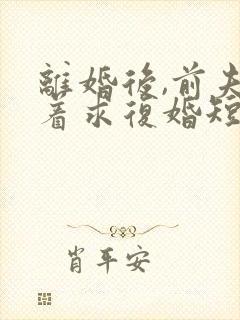 離婚後,前夫
着求復婚短
肖平安